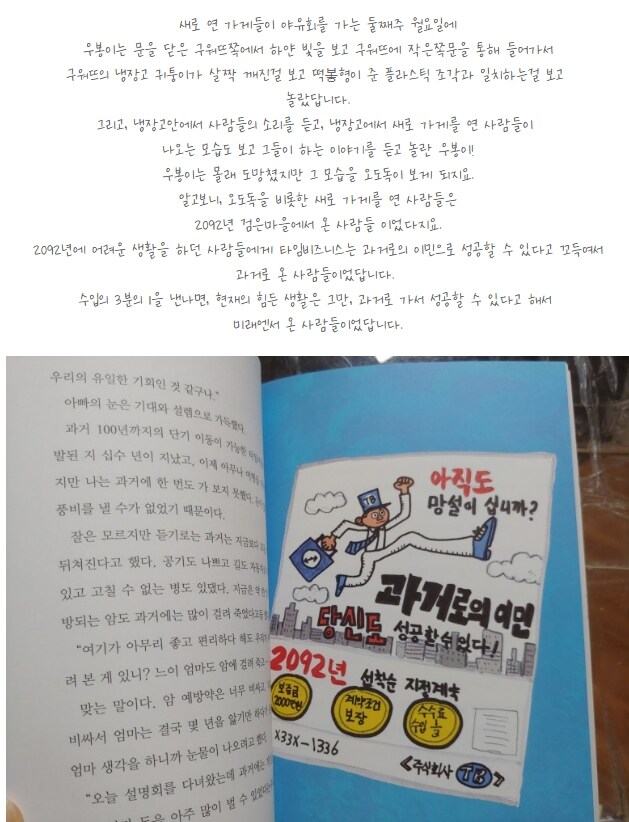 새로 연 가게들이 야유회를 가는 둘째주 월요일에
우봉이는 문을 닫은 구워뜨쪽에서 하얀 빛을 보고 구워뜨에 작은쪽문을 통해 들어가서
구워뜨의 냉장고 귀퉁이가 살짝 깨진걸 보고 떡봄형이 준 플라스틱 조각과 일치하는걸 보고
놀랐답니다.
그리고, 냉장고안에서 사람들의 소리를 듣고, 냉장고에서 새로 가게를 연 사람들이
나오는 모습도 보고 그들이 하는 이야기를 듣고 놀란 우봉이!
우봉이는 몰래 도망쳤지만 그 모습을 오도독이 보게 되지요.
알고보니, 오도독을 비롯한 새로 가게를 연 사람들은
2092년 검은마을에서 온 사람들 이었다지요.
2092년에 어려운 생활을 하던 사람들에게 타임비즈니스는 과거로의 이민으로 성공할 수 있다고 꼬득여서
과거로 온 사람들이었답니다.
수입의 3분의 1을 낸나면, 현재의 힘든 생활은 그만, 과거로 가서 성공할 수 있다고 해서
미래엔서 온 사람들이었답니다.
우리의 유일한 기회인 것 같구나."
아빠의 눈은 기대와 설렘으로 가득했다.
과거 100년까지의 단기 이동이 가능한
발된 지 십수 년이 지났고, 이제 아무나
지만 나는 과거에 한 번도 가 보지 못했다.
풍비를 낼 수가 없었기 때문이다.
잘은 모르지만 듣기로는 과거는 지금보다
뒤쳐진다고 했다. 공기도 나쁘고 길도
있고 고칠 수 없는 병도 있댔다. 지금은
방되는 암도 과거에는 많이 걸려 죽었다고
"여기가 아무리 좋고 편리하다 해도
려 본 게 있니? 느이 엄마도 암에 걸려 죽고
맞는 말이다. 암 예방약은 너무 비싸고
비싸서 엄마는 결국 몇 년을 앓기만
엄마 생각을 하니까 눈물이 나오려고 했다.
"오늘 설명회를 다녀왔는데 과거에는
돈을 아주 많이 벌 수 있었
TB
아직도
망설이 십니까?
과거로의 이민
당신도 성공할 수 있다!
2092년 선착순 지정계약
보증금 2000만원
계약조건 보장
수수료 수입 1/3
X33X-1336
<주식회사 TB>